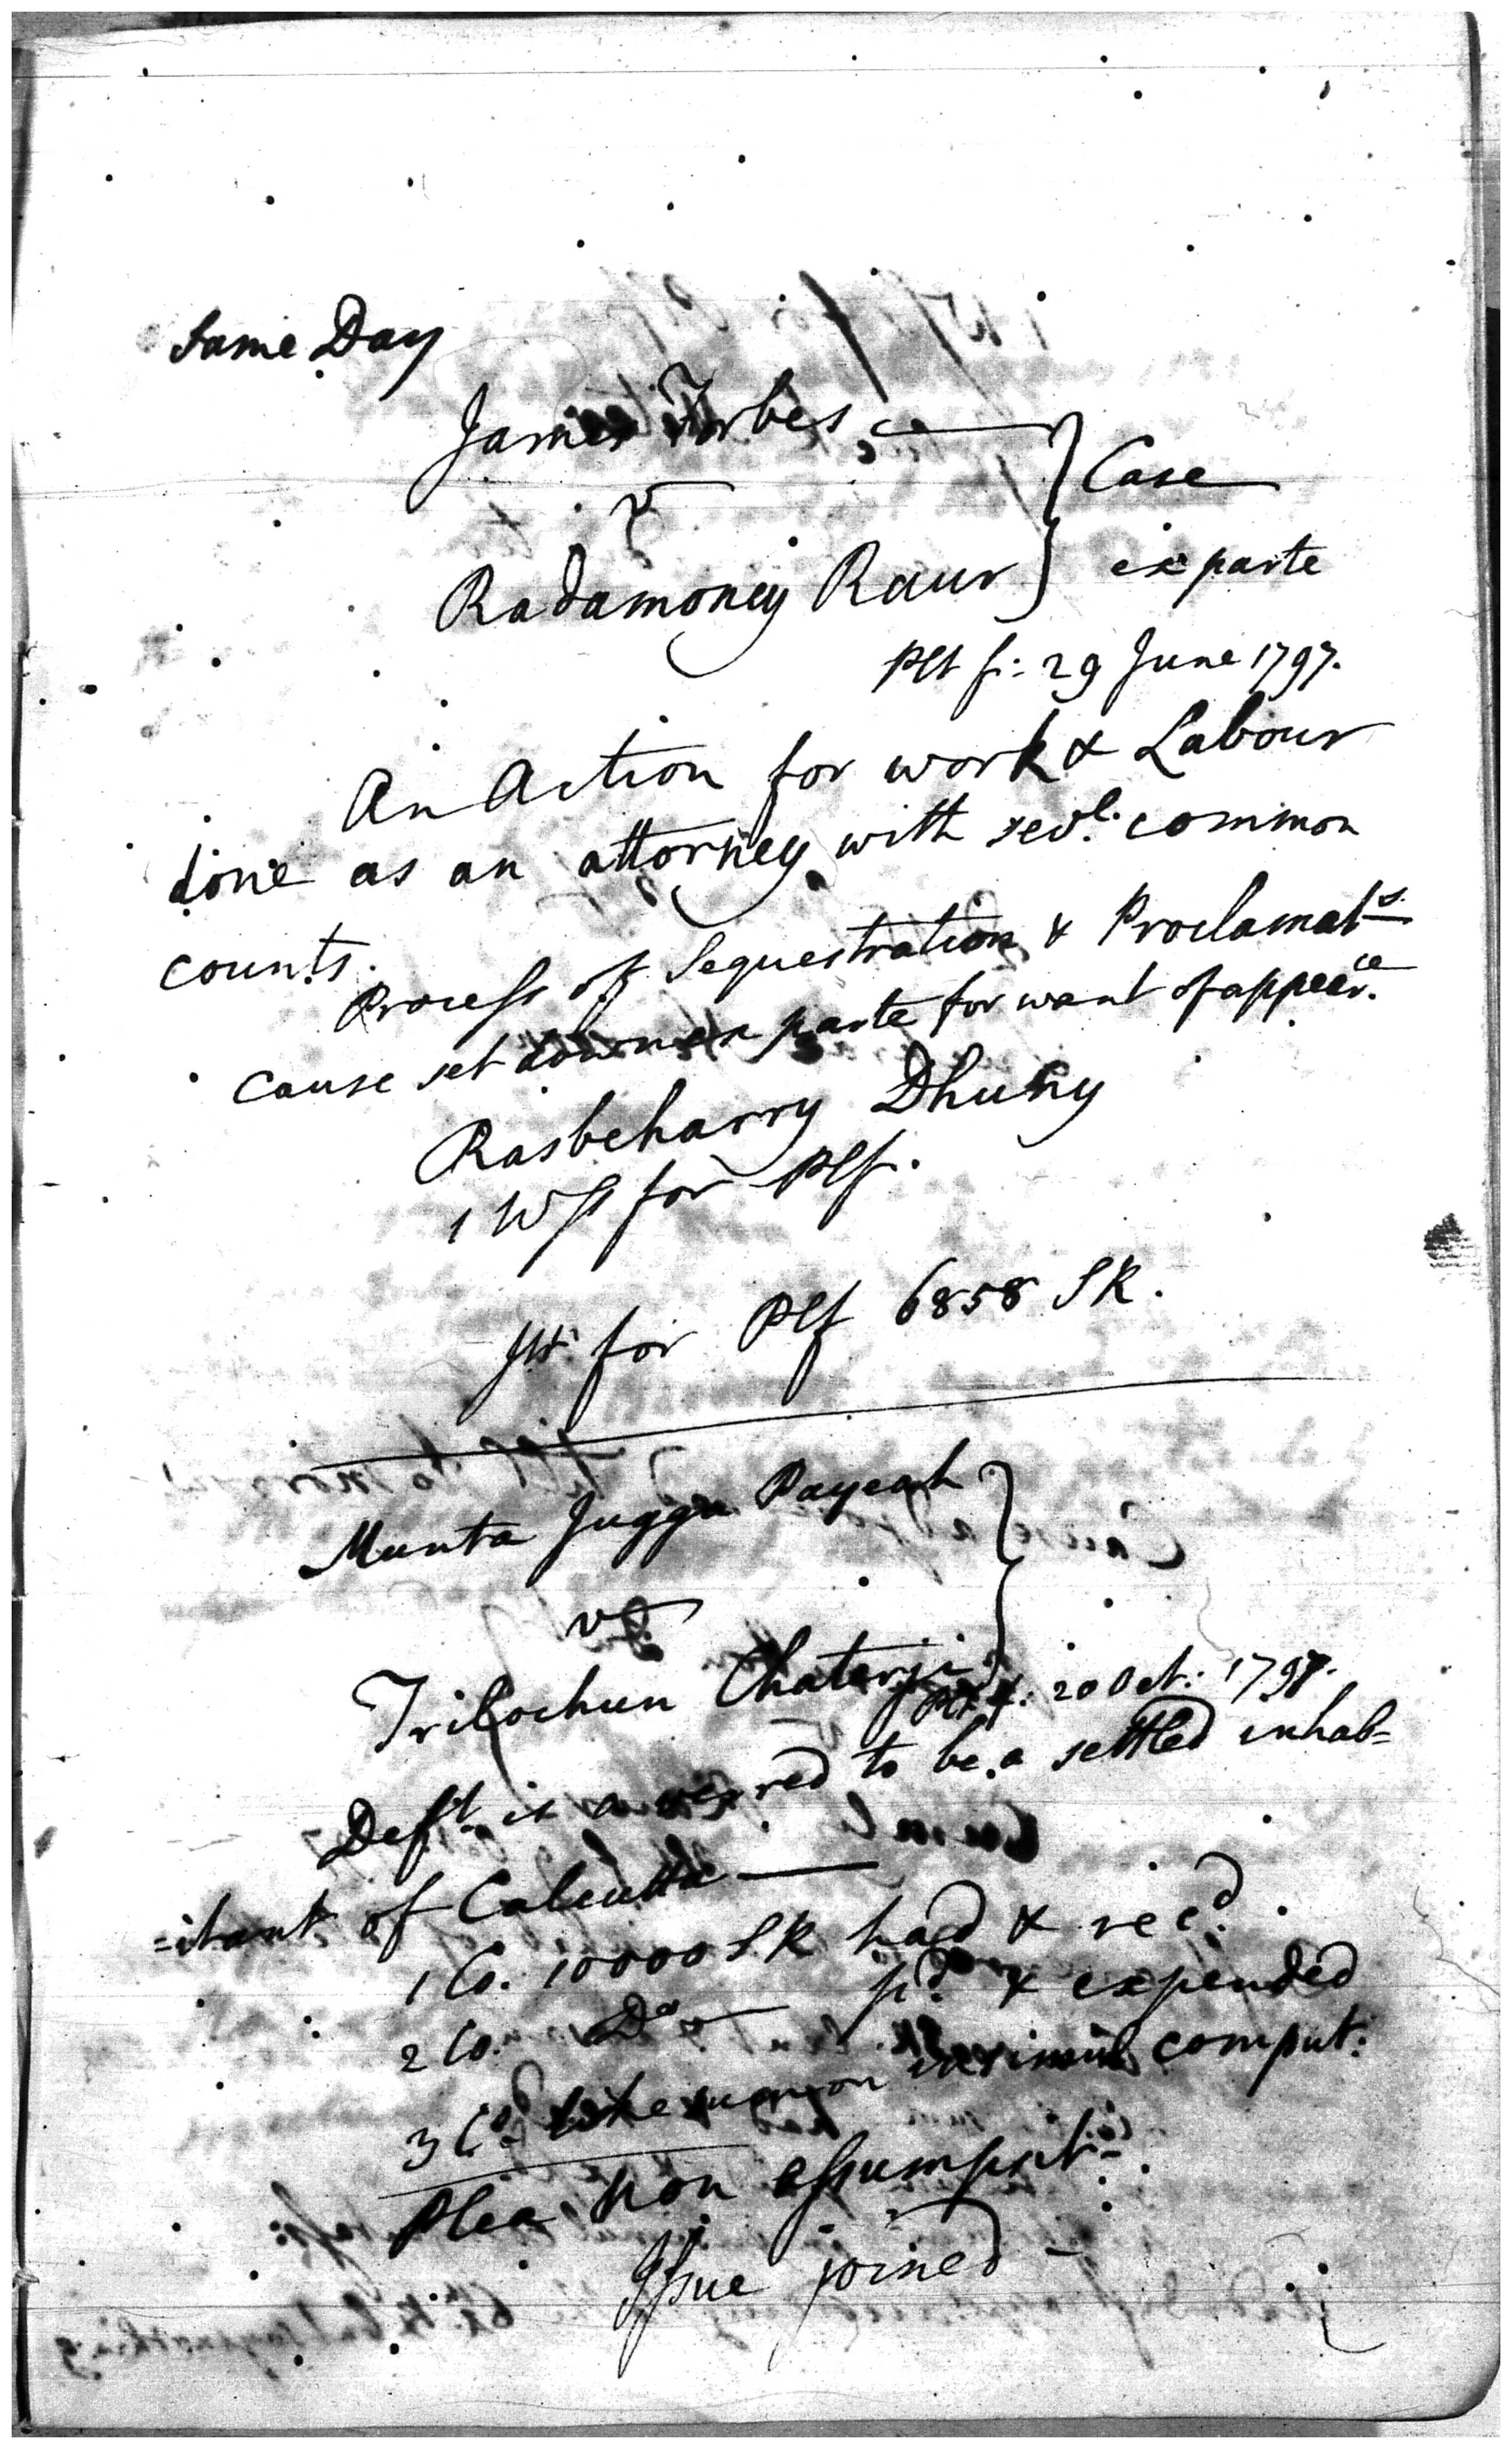 Same Day
James Forbes
v
Case
Radamoney Raur
exparte
Plt f: 29 June 1797.
An Action for work & Labour
done as an attorney with sevl. common
counts.
Process of Sequestration & Proclamats.
Cause set down ex parte for want of appearce.
Rasbeharry Dhuny
1 Wss for Plf.
Jt. for Plf 6858 SR.
Munta Juggu Payeah
v
Trilochun Chaterji
Plt f: 20 Oct: 1797.
Deft. is averred to be a settled inhab=
=itant of Calcutta
1 Co. 10000 SR had & recd.
2 Co. Do pd. & expended
3 Co. like sum on insimul comput:
Plea Non assumpsit
Issue joined